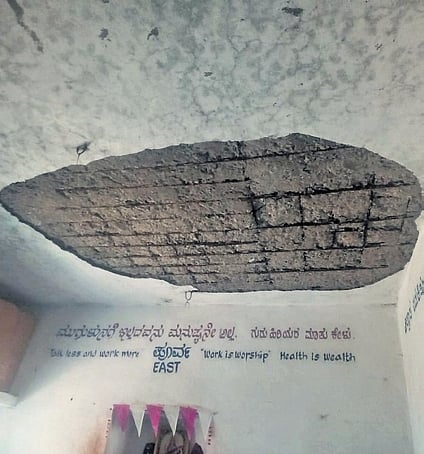 ಮುಗುಳುನಗೆ ಇಲ್ಲದವನು ಮನುಷ್ಯನೇ ಅಲ್ಲ. ಗುರು ಹಿರಿಯರ ಮಾತು ಕೇಳು.
Talk less and work more ಪೂರ್ವ "Work is worship" Health is wealth
EAST